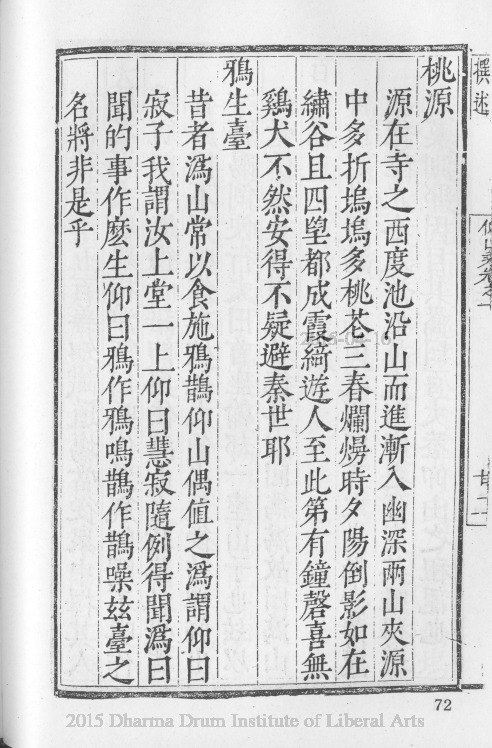 撰述
桃源
源在寺之西度池沿山而進漸入幽深兩山夾源
中多折塢塢多桃花三春爛熳時夕陽倒影如在
繡谷且四壁都成霞綺遊人至此第有鐘磬喜無
鷄犬不然安得不疑避秦世耶
鴉生臺
昔者溈山常以食施鴉鵲仰山偶值之溈謂仰曰
寂子我謂汝上堂一上仰曰慧寂隨例得聞溈曰
聞的事作麽生仰曰鴉作鴉鳴鵲作鵲噪兹臺之
名將非是乎
72
2015 Dharma Drum Institute of Liberal Arts